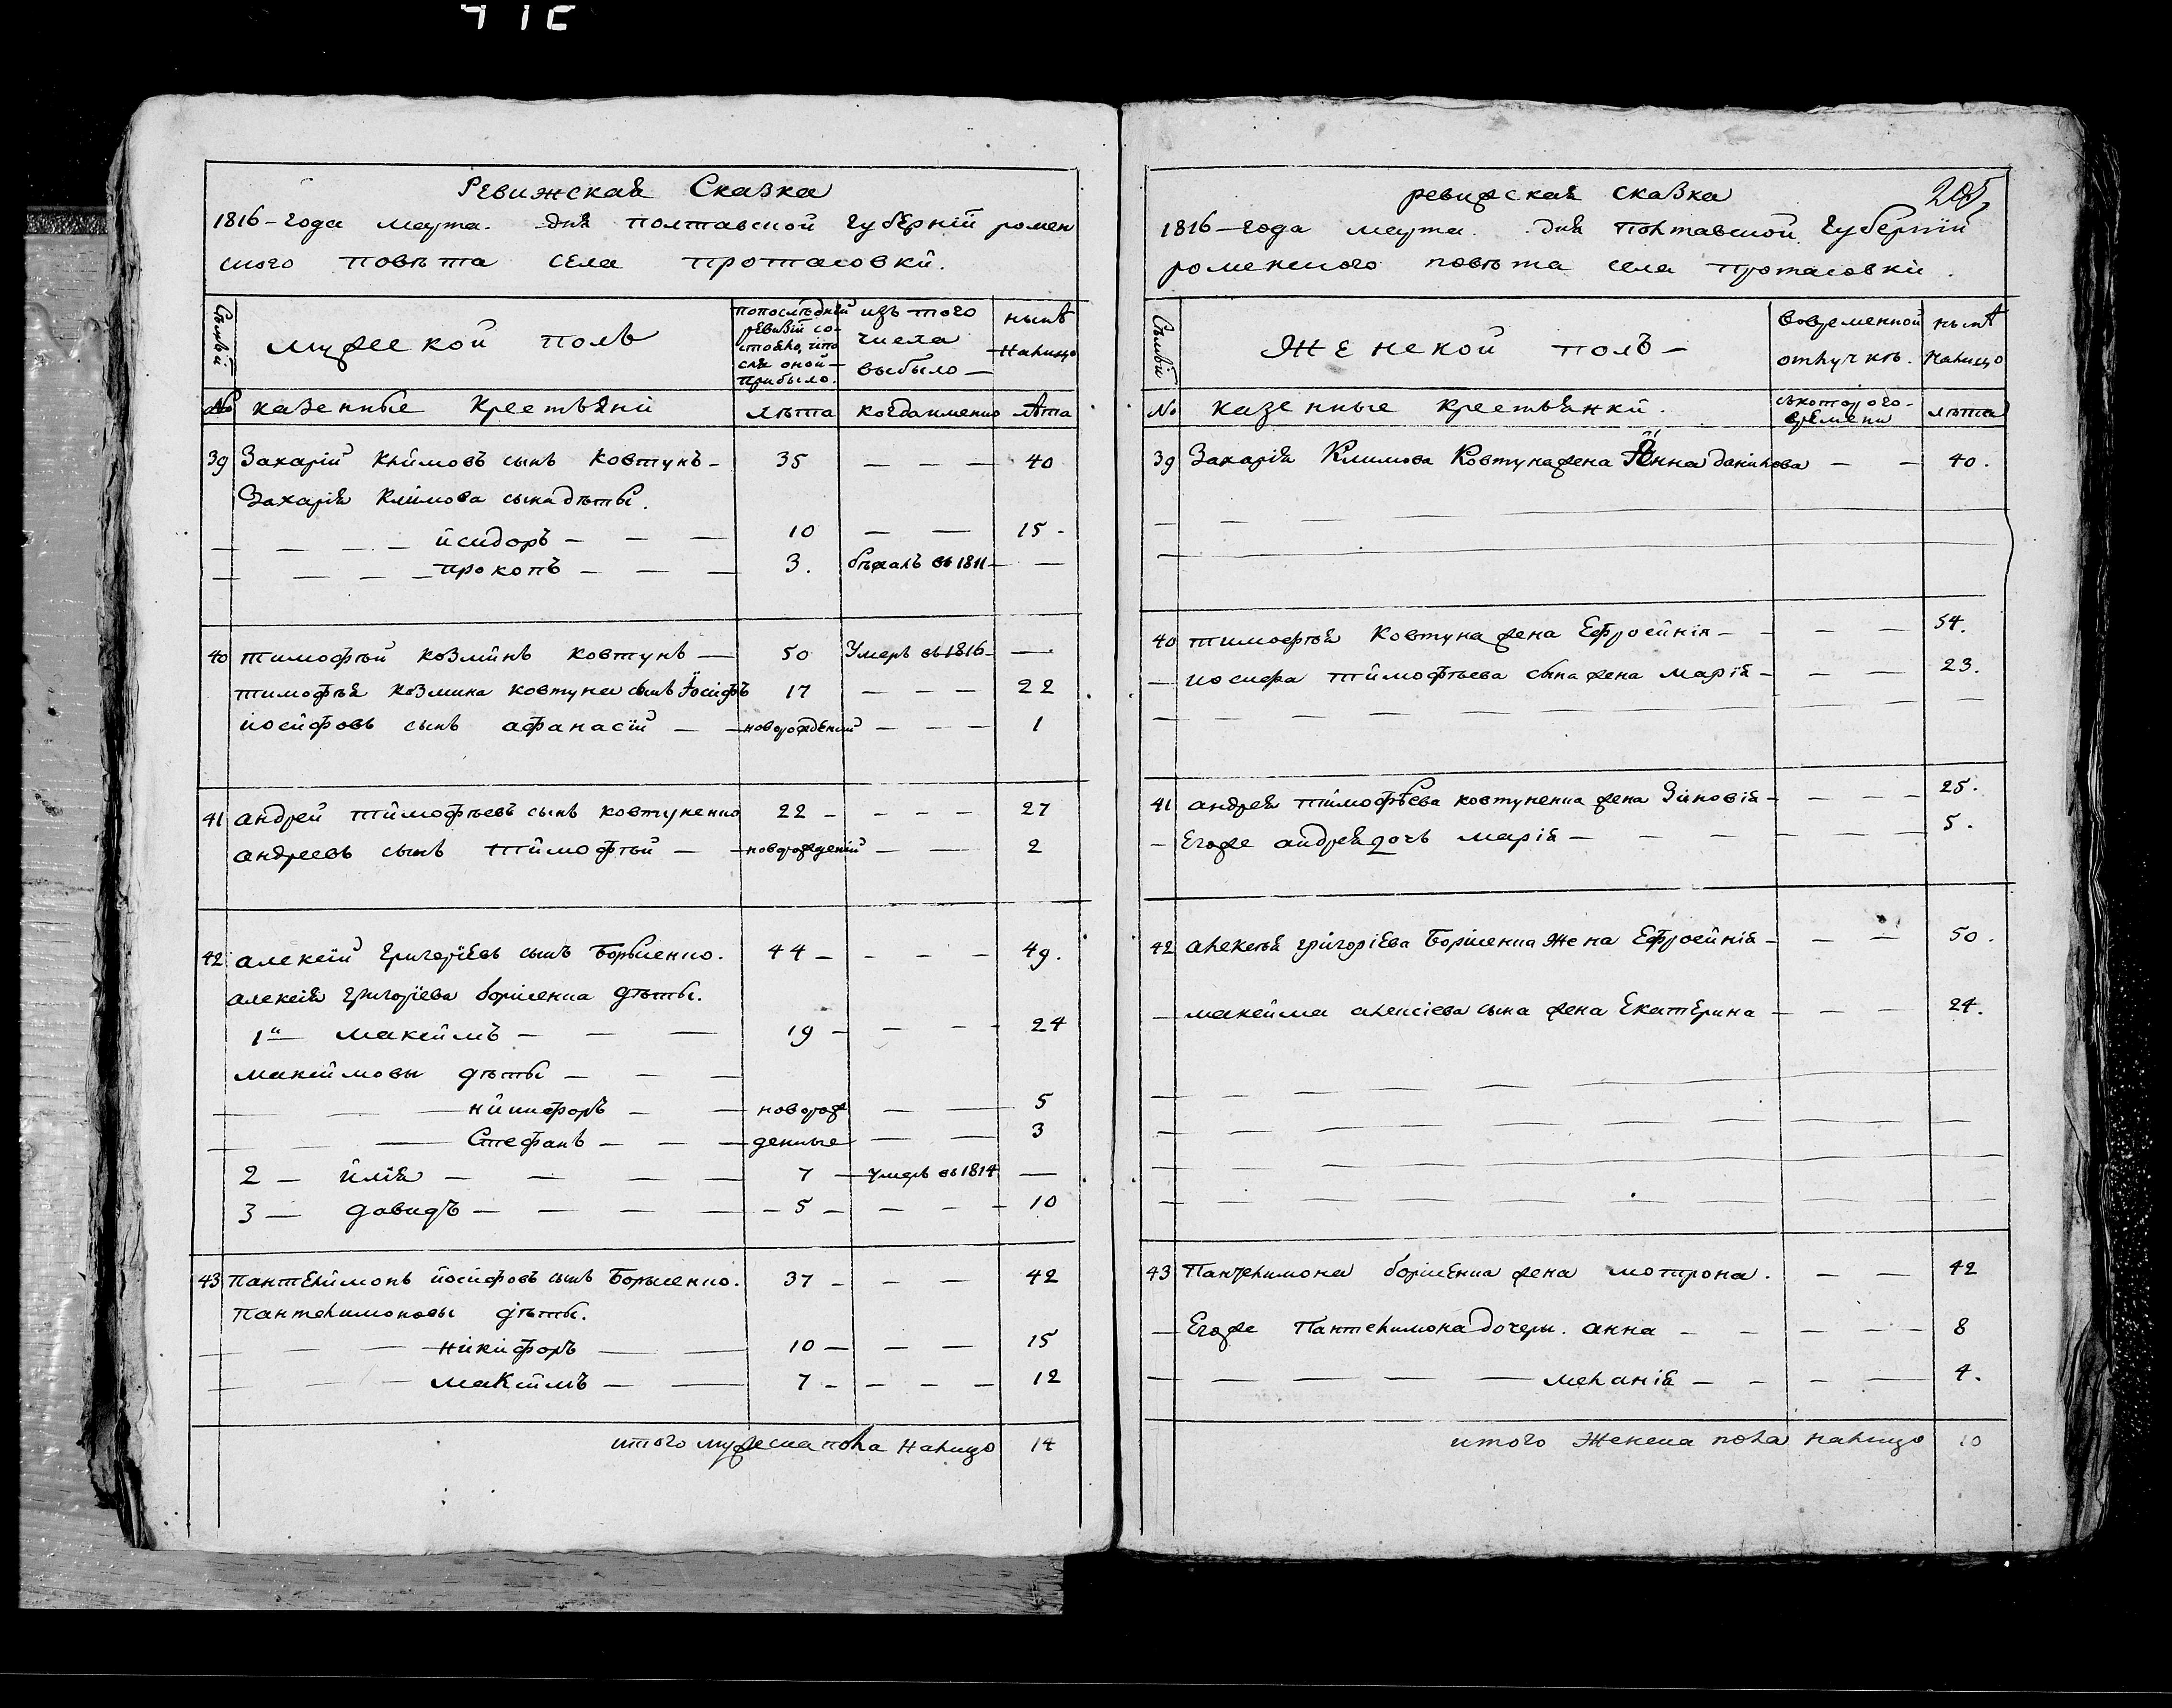 Ревижская Сказка
1816-года марта. дня полтавской губернїи ромен
ского повѣта села протасовки.
Съмьи
мужеской полъ
попослѣдней ревизїи со-стояло, ипо сля оной прибыло.
изъ того числа выбыло —
нынѣ налицо
№ казенные крестьяни лѣта когдаименно лѣта
39 Захарій Климовъ сынъ Ковтунъ — 35 — — — 40
Захарія Клїмова сына дѣты.
— — — — исидоръ — — — 10 — — 15 -
— — — — прокопъ — — — 3. бѣжалъ въ 1811 — —
40 тимофѣй козминъ ковтунъ — 50 Умеръ въ 1816 — —
тимофѣя козмина ковтуна сынъ Іосифъ 17 — — — 22
иосифовъ сынъ афанасій — — новорожденій — — — 1
41 андрей тимофѣевъ сынъ ковтуненко 22 — — — — 27
андреевъ сынъ тимофѣй — — новорожденій — — 2
42 алексій григорїевъ сынъ Борысенко. 44 — — — — 49.
алексія григорїева борисенка дѣты.
1й максимъ — — — 19 — — — 24
максимовы дѣты — — —
— — — никифоръ — — новорож — — 5
— — Стефанъ — — — денные — — 3
2 — илія — — — — 7 — умеръ въ 1814 —
3 — давидъ — — — — — 5 — — — — 10
43 пантелимонъ иосифовъ сынъ Борысенко. 37 — — — 42
пантелимоновы дѣты.
— — — никифоръ — — 10 — — — 15
— — максимъ — — 7 — — — — 12
итого мужеска пола налицо 14
ревижская сказка 205
1816-года марта. дня полтавской губернїи
роменского повѣта села протасовки.
Съмьи
Женской полъ —
вовременной отлучкѣ.
нынѣ налицо
№ казенные крестьянки. съкоторого-времени лѣта
39 Захарія Климова Ковтуна жена Анна данилова — — 40.
40 тимофѣя Ковтуна жена Ефросинія — — — — 54.
— иосифа тимофѣева сына жена марія — — — 23.
41 андрея тимофѣева ковтуненка жена Зиновія — — — — 25.
— Егоже андрея дочъ марія — — — — — — — 5.
42 алексѣя григорїева Борисенка Жена Ефросинія — — — 50.
— максима алексіева сына жена Екатерина — — — 24.
43 Пантелимона борисенка жена мотрона. — — 42
— Егоже Пантелимона дочеры. анна — — — — — 8
— — — — — меланія — — — — 4.
итого Женска пола налицо 10